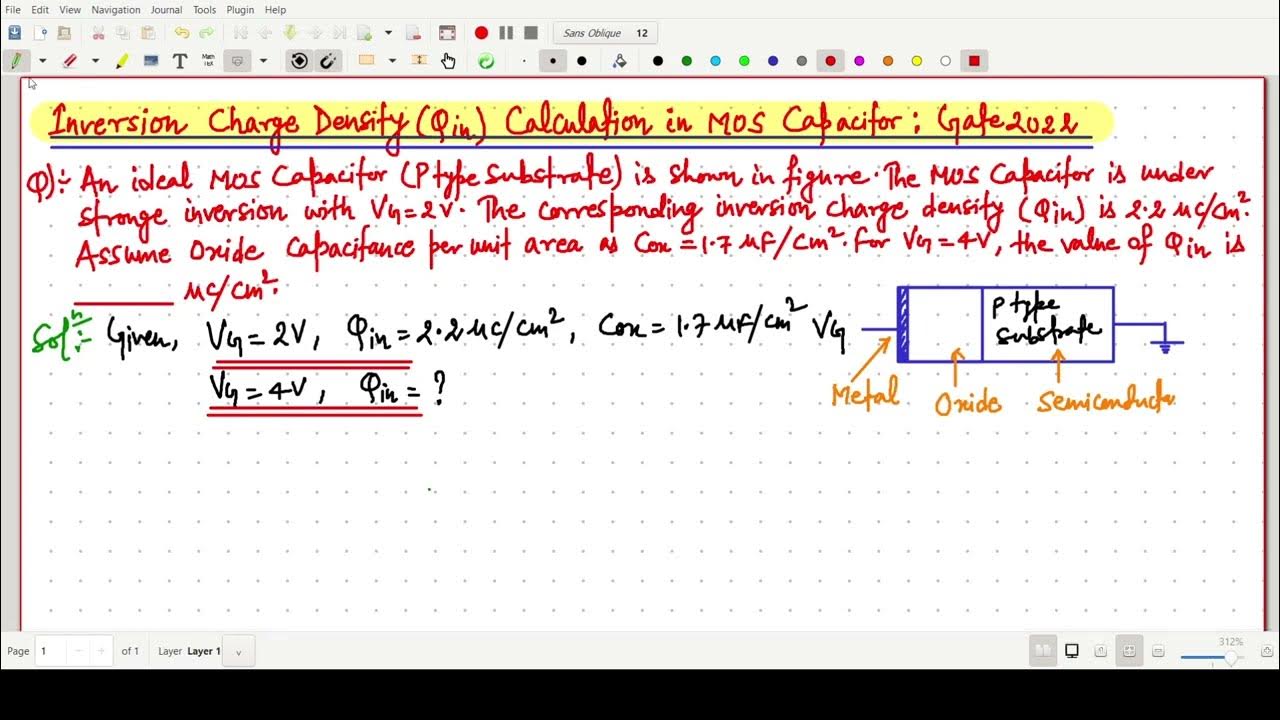 File Edit View Navigation Journal Tools Plugin Help
Sans Oblique 12
T Math TEX
Inversion Charge Density (Qin) Calculation in MOS Capacitor : Gate 2022
Q):- An ideal MOS Capacitor (P type Substrate) is shown in figure. The MOS Capacitor is under
stronge inversion with VG = 2V. The corresponding inversion charge density (Qin) is 2.2 μC/cm².
Assume Oxide Capacitance per unit area as Cox = 1.7 μF/cm². For VG = 4V, the value of Qin is
______ μC/cm².
Solⁿ:- Given, VG = 2V, Qin = 2.2 μC/cm², Cox = 1.7 μF/cm²
VG = 4V, Qin = ?
VG
P type
Substrate
Metal Oxide Semiconductor
Page 1 of 1 Layer Layer 1
312%